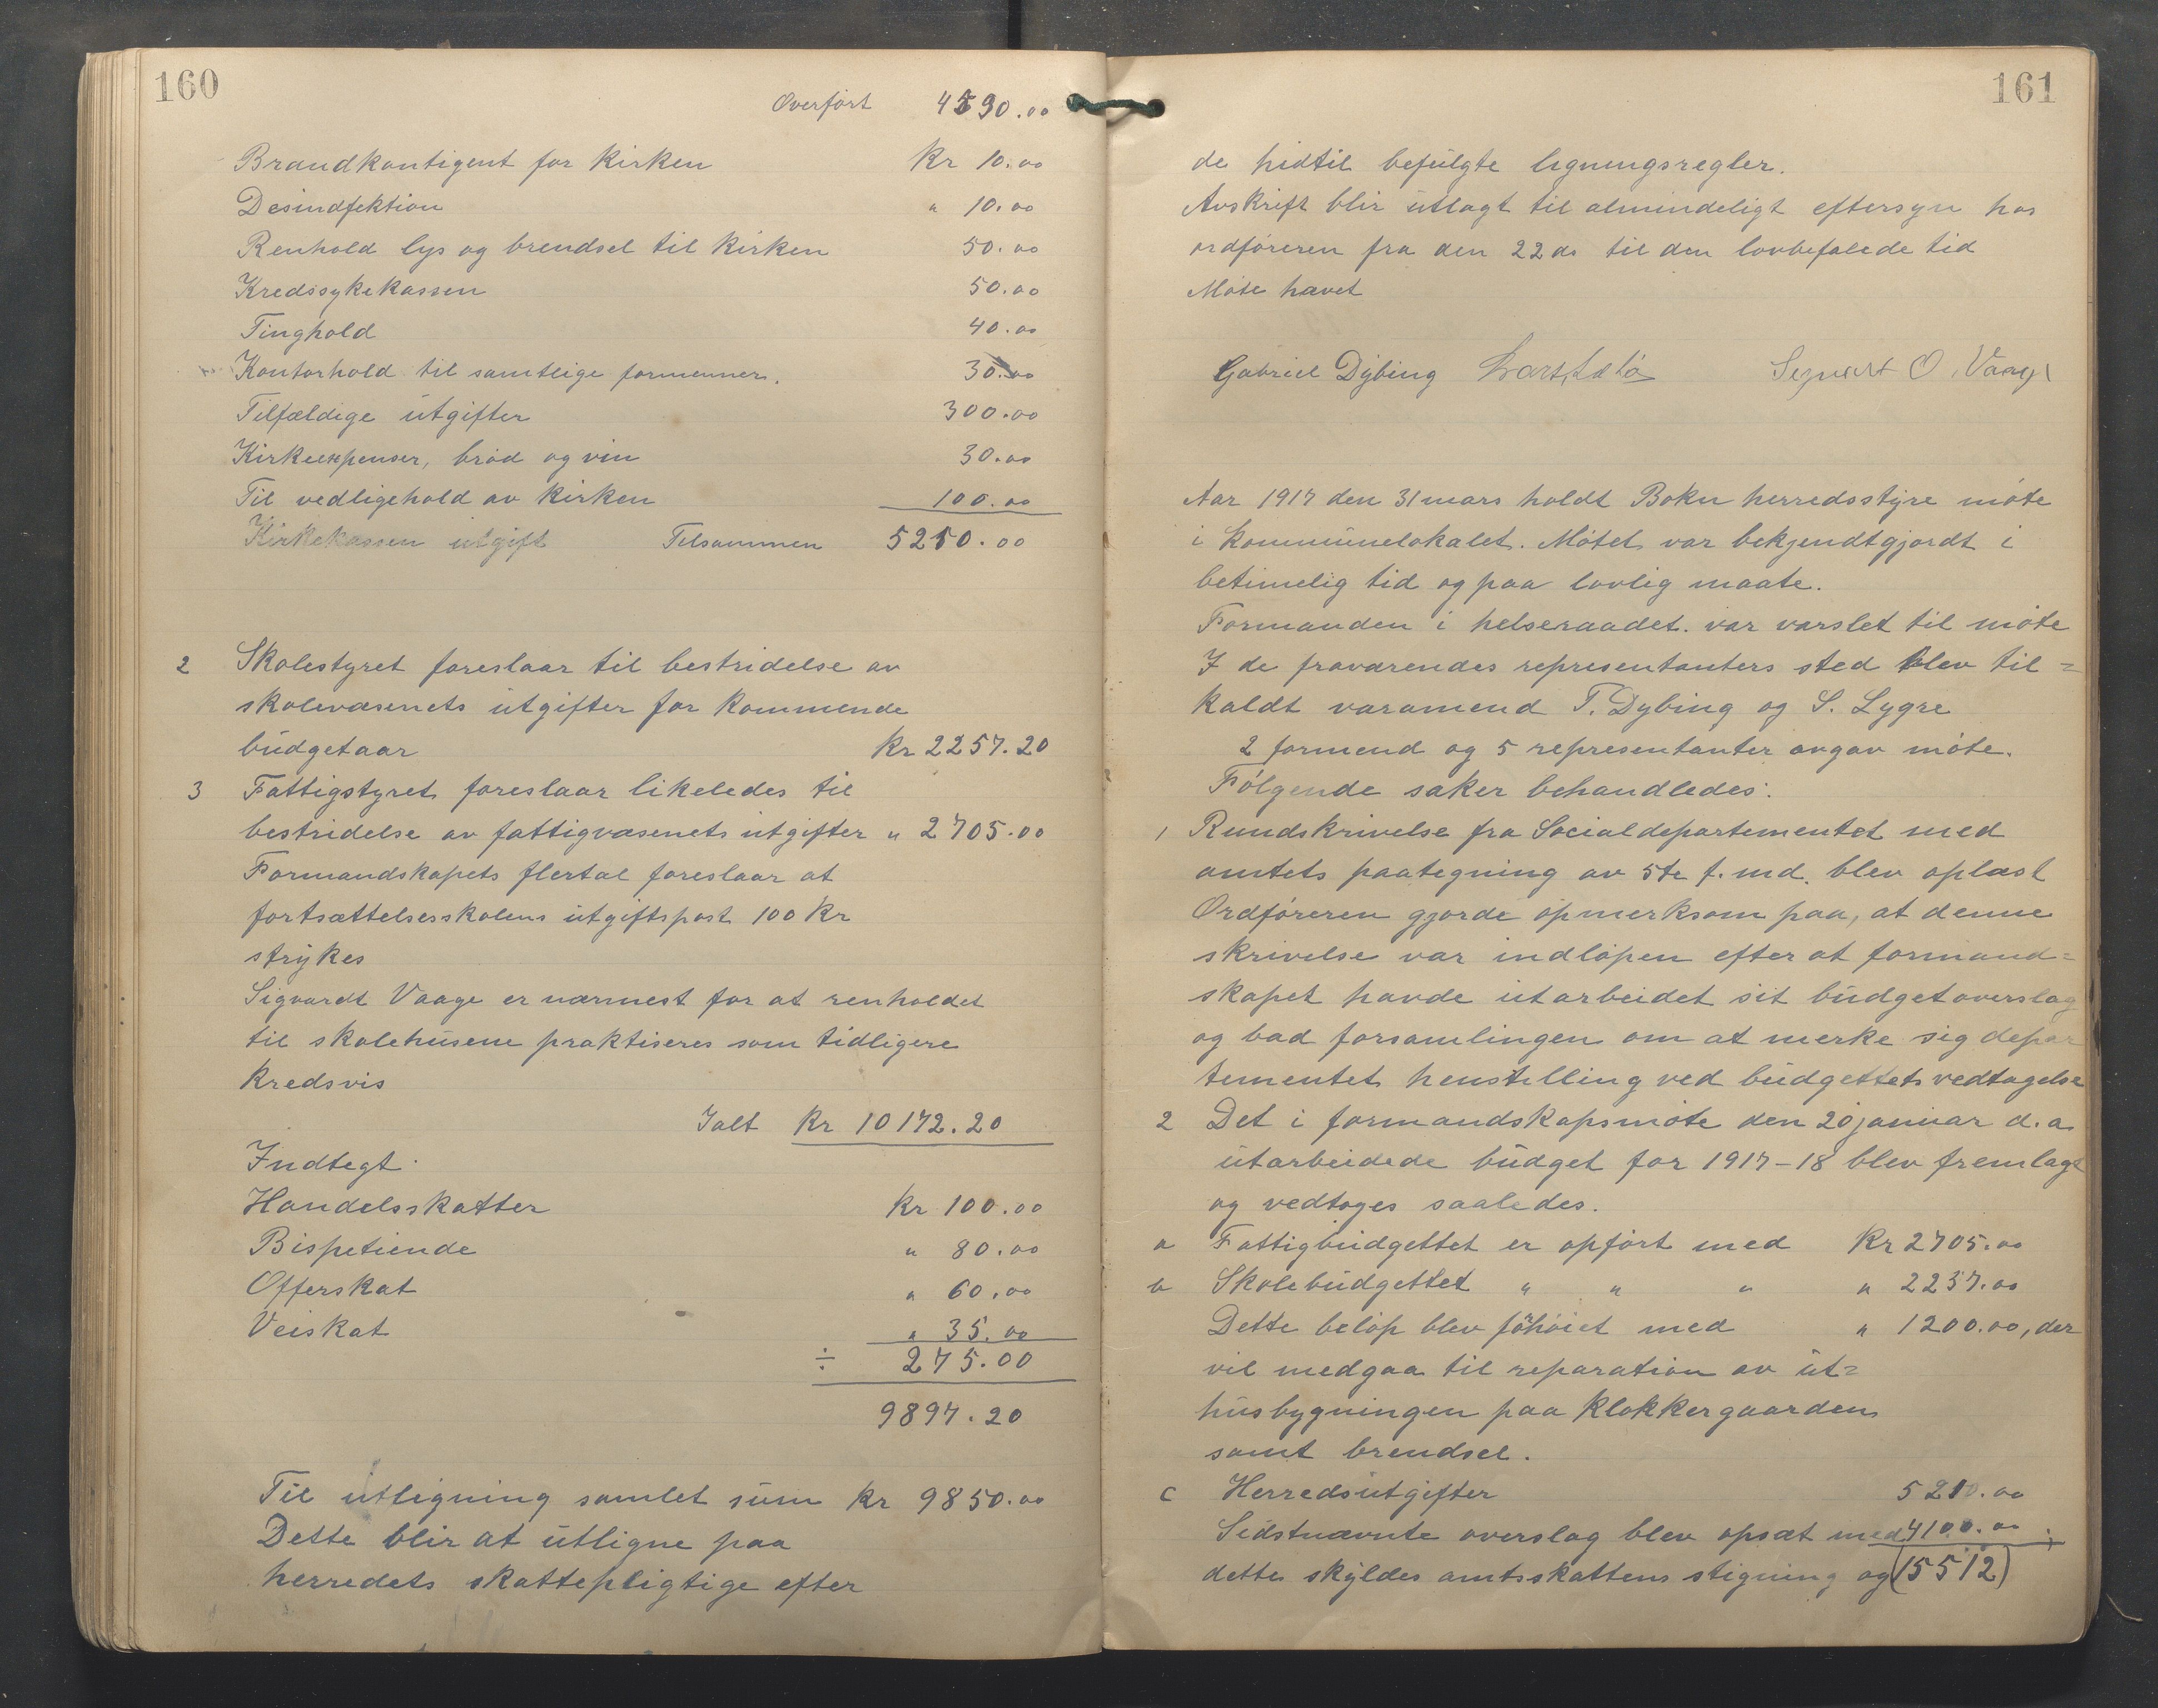 160
Overført 4590.00
Brandkontigent for Kirken Kr 10.00
Desindfektion " 10.00
Renhold lys og brendsel til Kirken 50.00
Kredssykekassen 50.00
Tinghold 40.00
Kontorhold til samtlige formenner. 30.00
Tilfældige utgifter 300.00
Kirkeexpenser, brød og vin 30.00
Til vedligehold av Kirken 100.00
Kirkekassen utgift Tilsammen 5210.00
2 Skolestyret foreslaar til bestridelse av
skolevæsenets utgifter for kommende
budgetaar Kr 2257.20
3 Fattigstyret foreslaar likeledes til
bestridelse av fattigvæsenets utgifter " 2705.00
Formandskapets flertal foreslaar at
fortsættelsesskolens utgiftspost 100 Kr
strykes
Sigvardt Vaage er nærmest for at renholdet
til skolehusene praktiseres som tidligere
Kredsvis
Ialt Kr 10172.20
Indtegt.
Handelsskatter Kr 100.00
Bispetiende " 80.00
Offerskat " 60.00
Veiskat " 35.00
÷ 275.00
9897.20
Til utligning samlet sum Kr 9850.00
Dette blir at utligne paa
herredets skattepligtige efter
161
de hidtil befulgte ligningsregler.
Avskrift blir utlagt til almindeligt eftersyn hos
ordføreren fra den 22 ds til den lovbefalede tid
Møte hævet
Gabriel Dybing Lars Sæbø Sigvart O. Vaage
Aar 1917 den 31 mars holdt Bokn herredsstyre møte
i Kommunelokalet. Møtet var bekjendtgjordt i
betimelig tid og paa lovlig maate.
Formanden i helseraadet. var varslet til møte
I de fraværendes representanters sted blev til=
kaldt varamend T. Dybing og S. Lygre
2 formend og 5 representanter avgav møte.
Følgende saker behandledes:
1 Rundskrivelse fra Socialdepartementet med
amtets paategning av 5te f. md. blev oplæst
Ordføreren gjorde opmerksom paa, at denne
skrivelse var indløpen efter at formand=
skapet havde utarbeidet sit budgetoverslag
og bad forsamlingen om at merke sig depar
tementet henstilling ved budgettets vedtagelse
2 Det i formandskapsmøte den 20 januar d. a.
utarbeidede budget for 1917-18 blev fremlagt
og vedtoges saaledes.
a Fattigbudgettet er opført med Kr 2705.00
b Skolebudgettet " " " " 2257.00
Dette beløp blev føhøiet med " 1200.00, der
vil medgaa til reparation av ut=
husbygningen paa Klokkergaarden
samt brendsel.
c Herredsutgifter 5210.00
Sidstnævnte overslag blev opsat med 4100.00.
dette skyldes amtsskattens stigning og (15512)